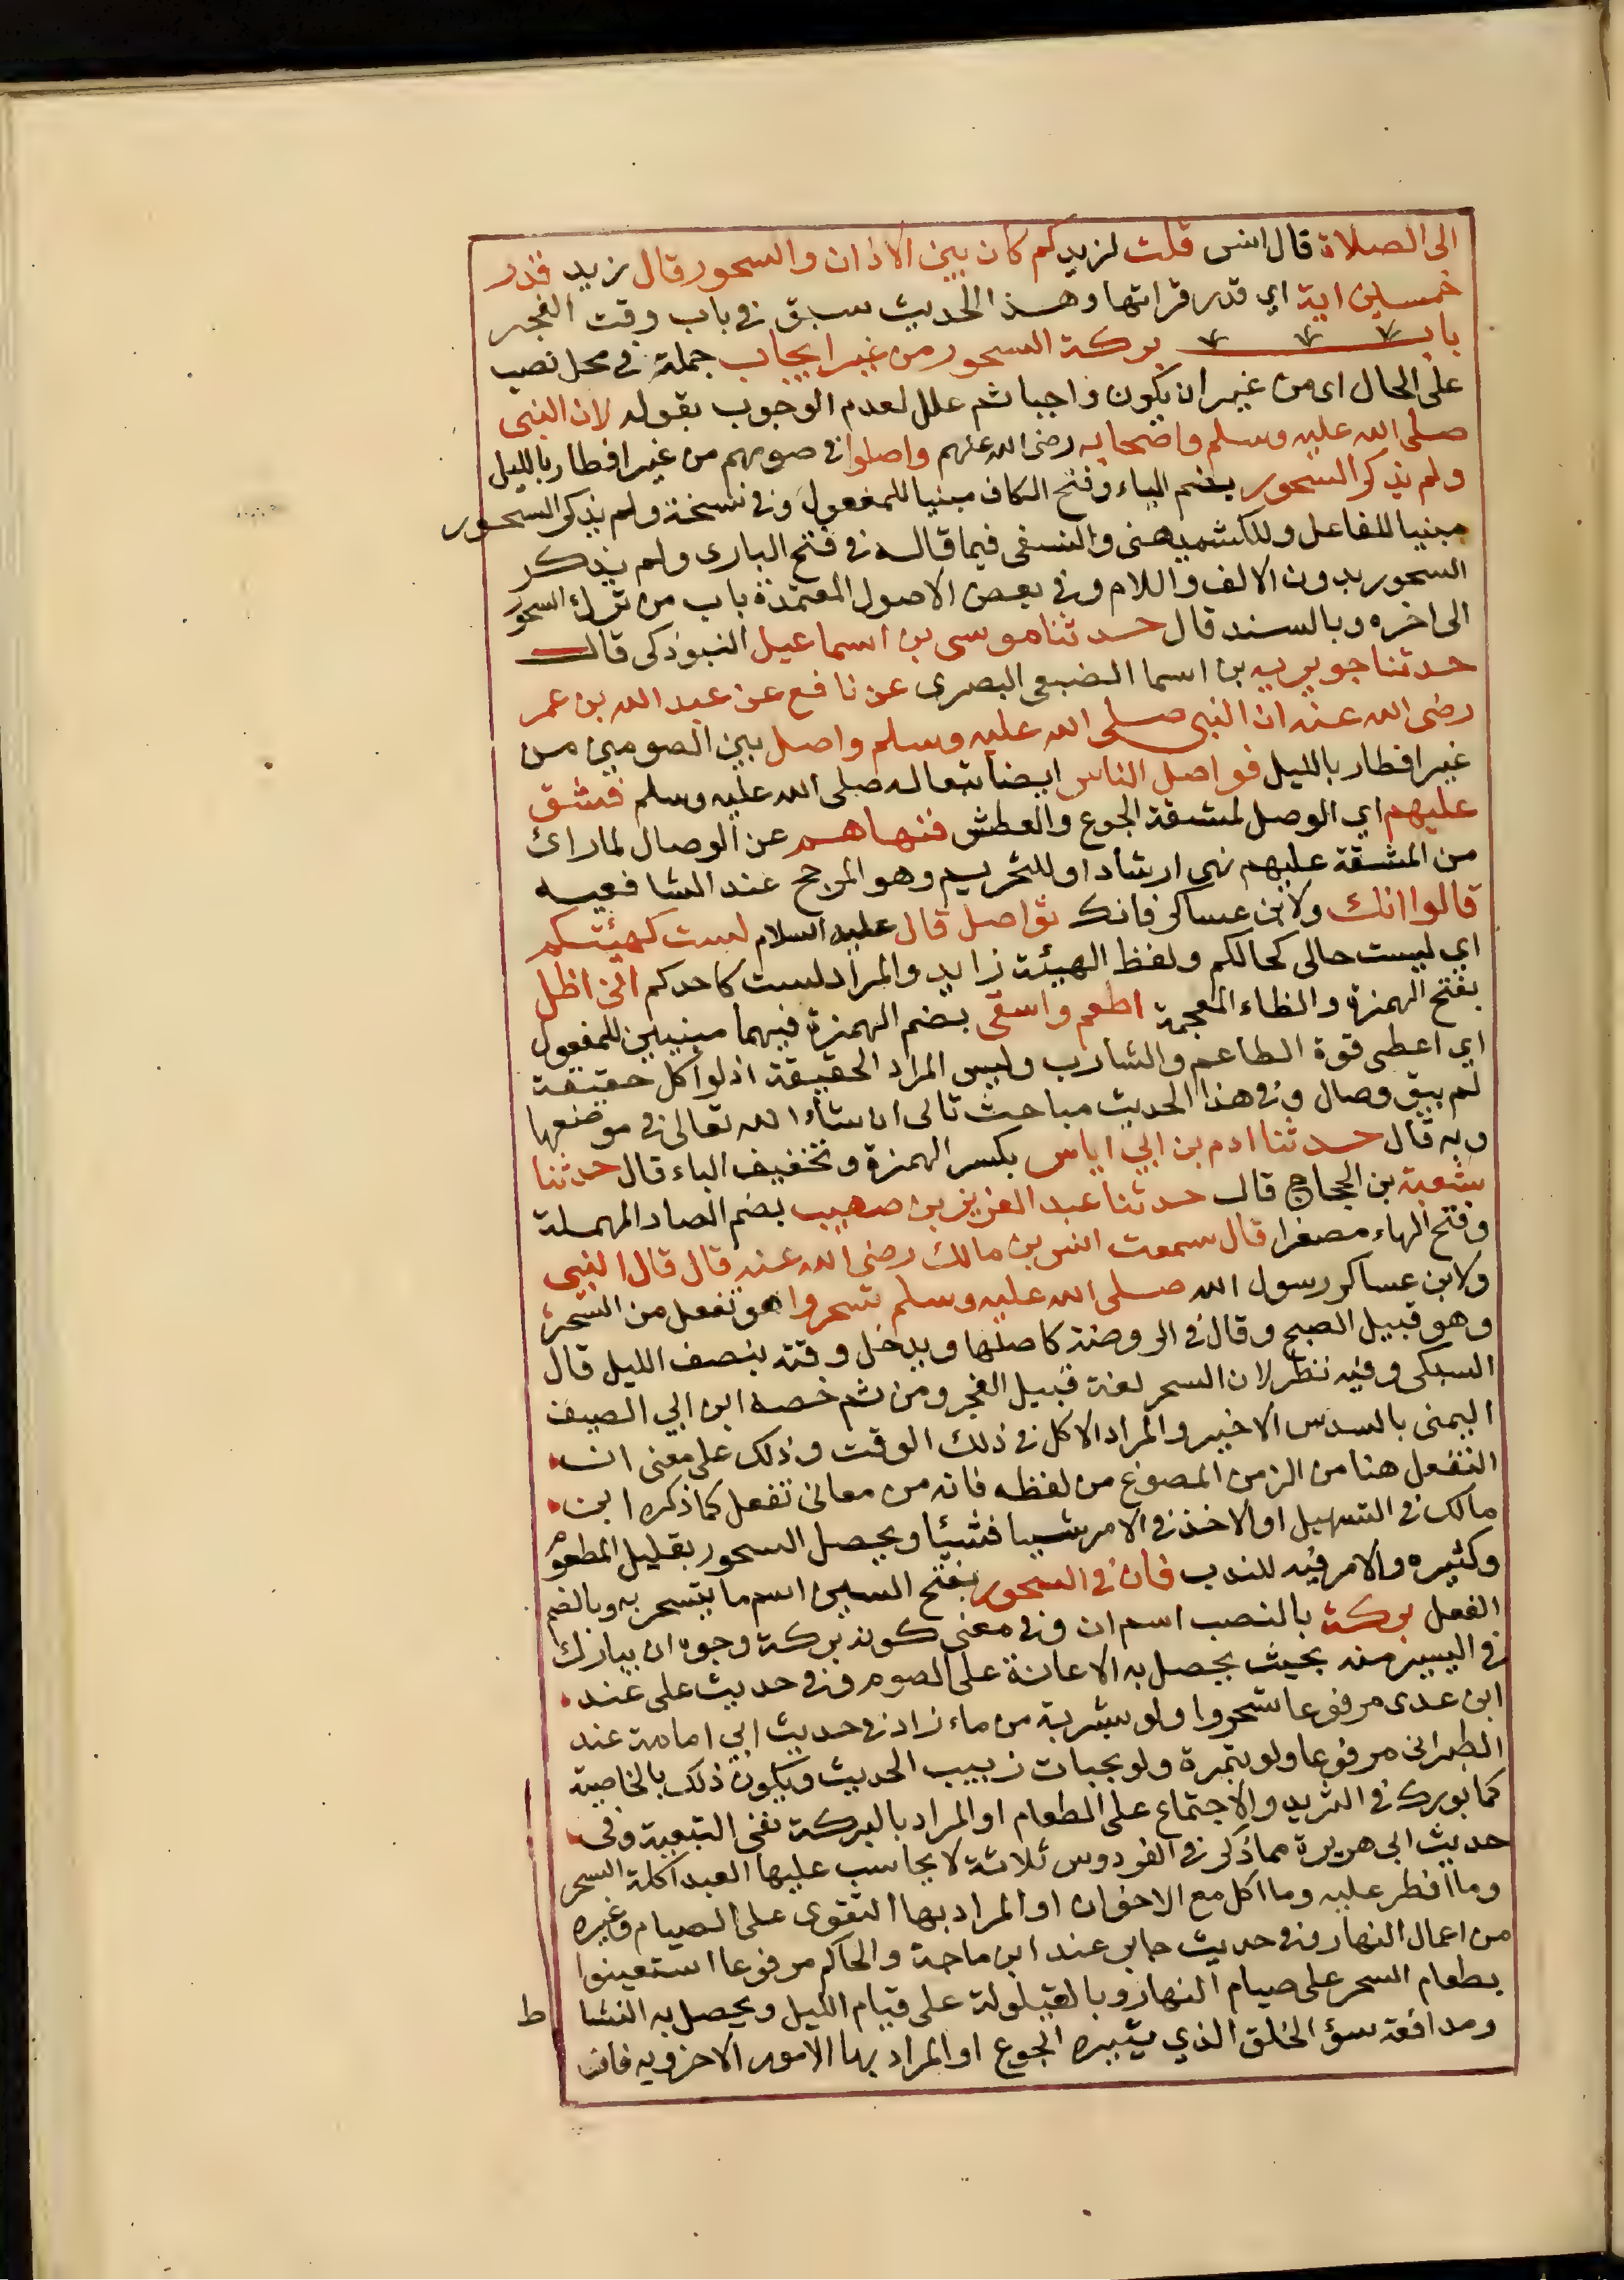 الى الصلاة قال انس قلت لزيد كم كان بين الاذان والسحور قال زيد قدر
خمسين اية اي قدر قراتها وهذا الحديث سبق في باب وقت الفجر
باب بركة السحور من غير ايجاب جملة في محل نصب
على الحال اى من غير ان يكون واجبا ثم علل لعدم الوجوب بقوله لان النبى
صلى الله عليه وسلم واصحابه رضى الله عنهم واصلوا في صومهم من غير افطار بالليل
ولم يذكر السحور بضم الياء وفتح الكاف مبنيا للمفعول وفي نسخة ولم يذكر السحور
مبنيا للفاعل وللكشميهنى والنسفى فيما قاله في فتح البارى ولم يذكر
السحور بدون الالف واللام وفي بعض الاصول المعتمدة باب من ترك السحور
الى اخره وبالسند قال حدثنا موسى بن اسماعيل التبوذكى قال
حدثنا جويريه بن اسما الضبعى البصرى عن نافع عن عبد الله بن عمر
رضى الله عنه ان النبى صلى الله عليه وسلم واصل بين الصومين من
غير افطار بالليل فواصل الناس ايضا تبعاله صلى الله عليه وسلم فشق
عليهم اي الوصل لمشقة الجوع والعطش فنهاهم عن الوصال لما راى
من المشقة عليهم نهى ارشاد او للتحريم وهو المرجح عند الشافعيه
قالوا انك ولابن عساكر فانك تواصل قال عليه السلام لست كهيئتكم
اي ليست حالى كحالكم ولفظ الهيئة زايد والمراد لست كاحدكم انى اظل
بفتح الهمزة والظاء المعجمة اطعم واسقى بضم الهمزة فيهما مبنيين للمفعول
اي اعطى قوة الطاعم والشارب وليس المراد الحقيقة اذ لو اكل حقيقة
لم يبق وصال وفي هذا الحديث مباحث تاتى ان شاء الله تعالى في موضعها
وبه قال حدثنا ادم بن ابي اياس بكسر الهمزة وتخفيف الياء قال حدثنا
شعبة بن الحجاج قال حدثنا عبد العزيز بن صهيب بضم الصاد المهملة
وفتح الهاء مصغرا قال سمعت انس بن مالك رضى الله عنه قال قال النبى
ولابن عساكر رسول الله صلى الله عليه وسلم تسحروا هو تفعل من السحر
وهو قبيل الصبح وقال في الروضة كاصلها ويدخل وقته بنصف الليل قال
السبكى وفيه نظر لان السحر لغة قبيل الفجر ومن ثم خصه ابن ابي الصيف
اليمنى بالسدس الاخير والمراد الاكل في ذلك الوقت وذلك على معنى ان
التفعل هنا من الزمن المصوغ من لفظه فانه من معانى تفعل كما ذكره ابن
مالك في التسهيل او الاخذ في الامر شيا فشيئا ويحصل السحور بقليل المطعوم
وكثيره والامر فيه للندب فان في السحور بفتح السين اسم ما يتسحر به وبالضم
الفعل بركة بالنصب اسم ان وفي معنى كونه بركة وجوه ان يبارك
في اليسير منه بحيث يحصل به الاعانة على الصوم وفي حديث على عند
ابن عدى مرفوعا تسحروا ولو بشربة من ماء زاد في حديث ابي امامة عند
الطبرانى مرفوعا ولو بتمرة ولو بحبات زبيب الحديث ويكون ذلك بالخاصية
كما بورك في الثريد والاجتماع على الطعام او المراد بالبركة نفى التبعية وفى
حديث ابى هريرة مما ذكر في الفردوس ثلاثة لا يحاسب عليها العبد اكلة السحر
وما افطر عليه وما اكل مع الاخوان او المراد بها التقوى على الصيام وغيره
من اعمال النهار وفي حديث جابر عند ابن ماجة والحاكم مرفوعا استعينوا
بطعام السحر على صيام النهار وبالقيلولة على قيام الليل ويحصل به النشا ط
ومدافعة سؤ الخلق الذي يثيره الجوع او المراد بها الامور الاخرويه فان